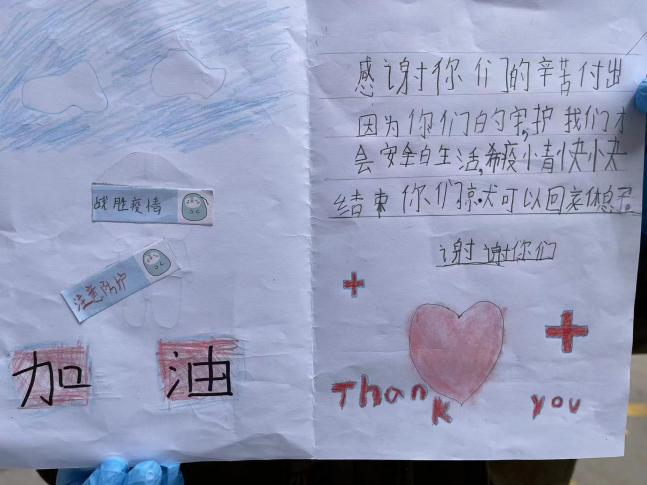 战胜疫情
注意防护
加油
感谢你们的辛苦付出
因为你们的守护,我们才
会安全的生活,希疫情快快
结束你们就可以回家休息了。
谢谢你们
Thank you